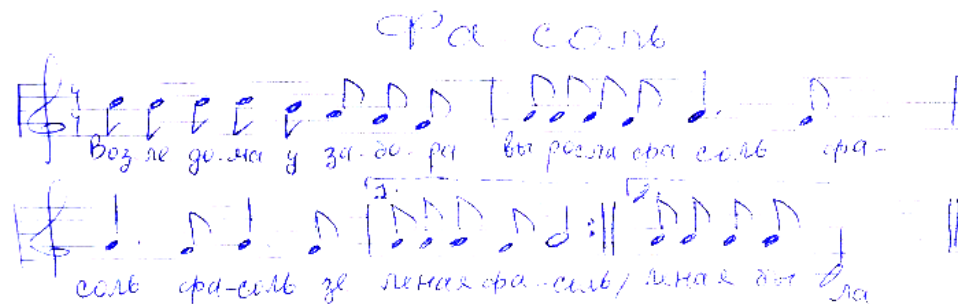 Фа соль
Воз ле до-ма у за-бо-ра вы росла фа соль фа-
1. 2.
соль фа-соль зе леная фа-соль/ леная бы ла